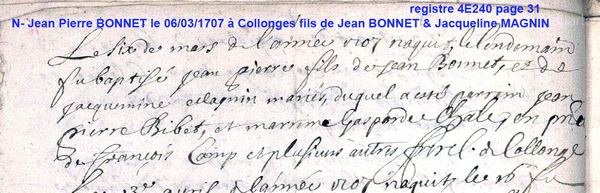 registre 4E240 page 31
N- Jean Pierre BONNET le 06/03/1707 à Collonges fils de Jean BONNET & Jacqueline MAGNIN
Le six de mars de l'année 1707 naquit, le lendemain
fu baptisé jean pierre fils de jean Bonnet, et de
jacquemine Magnin mariés, duquel a esté perrim jean
pierre Bibet, et marrine Gasparde Chale, en pnce
de françois Camp et plusieurs autres de Collonge
avril de l'année 1707 naquit, le 16 fu